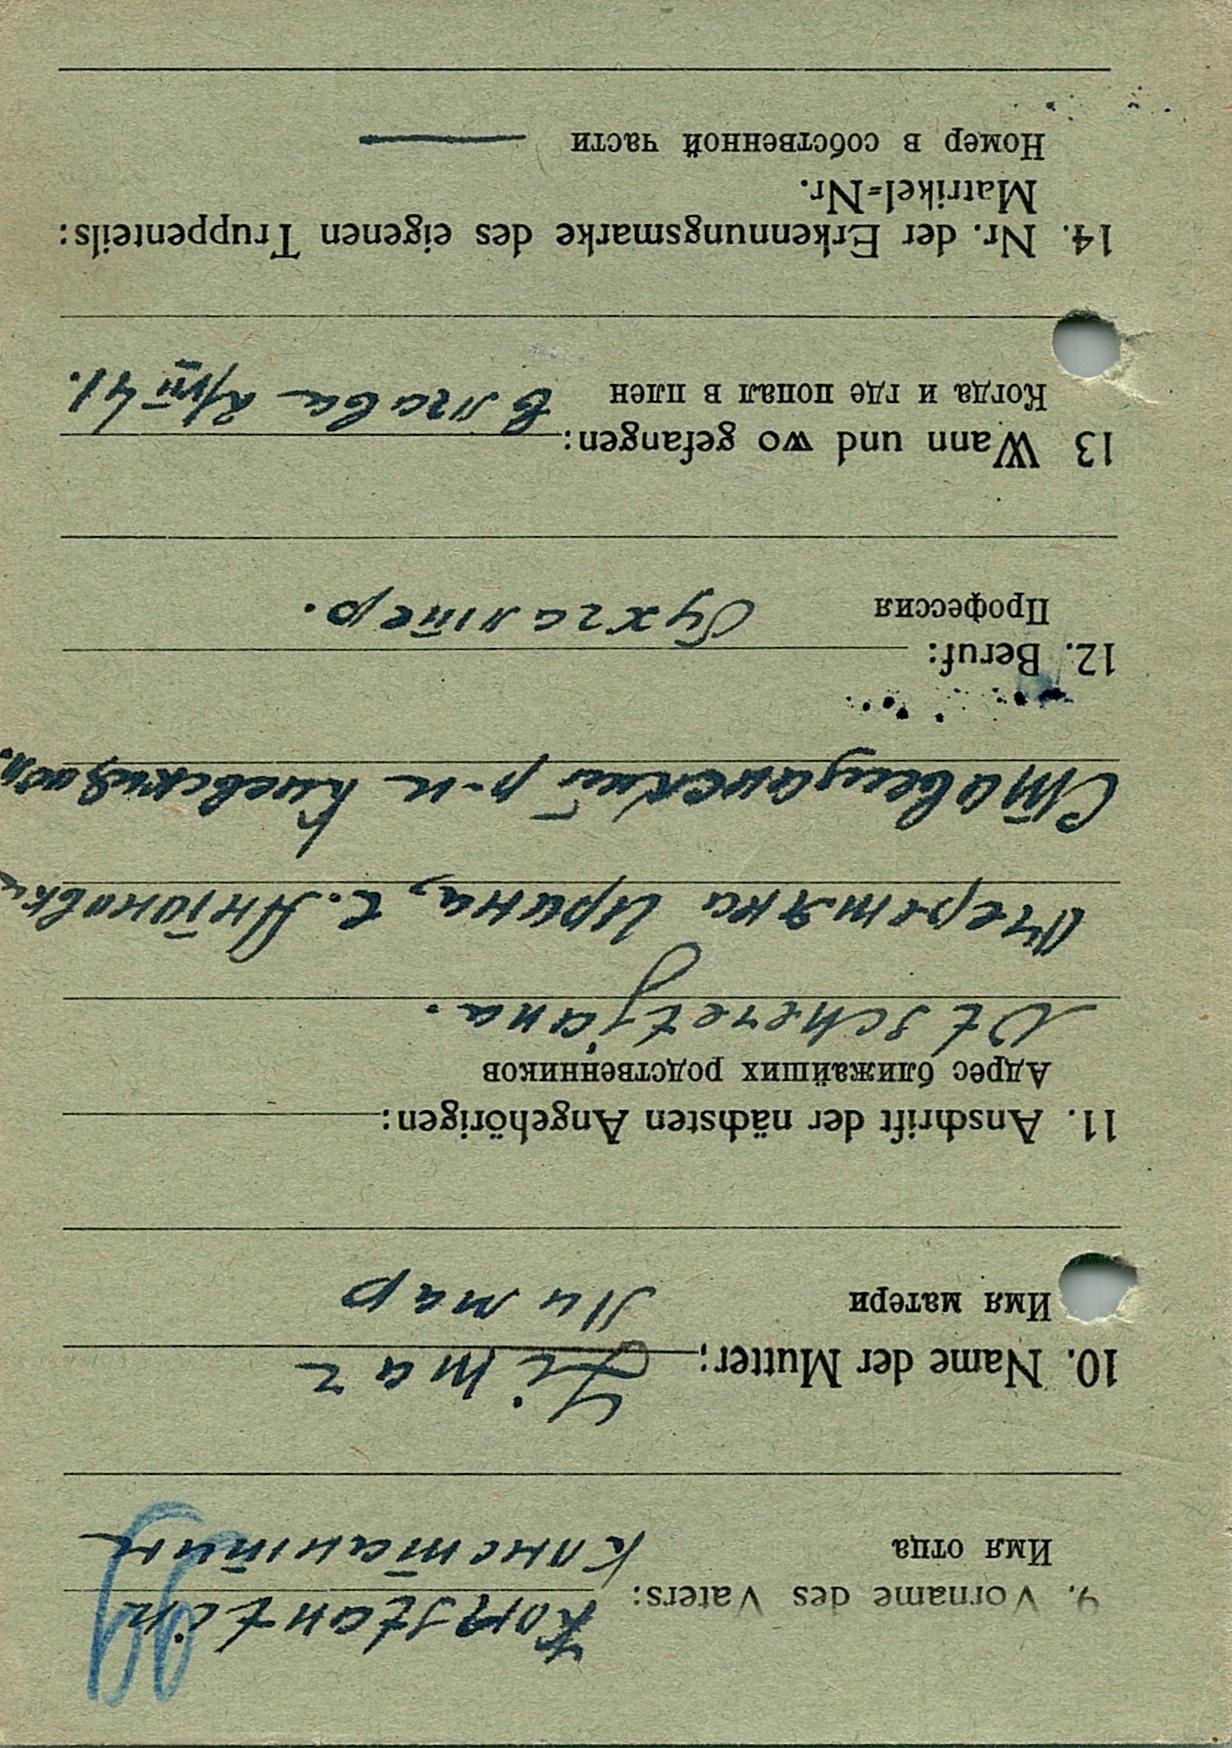 9. Vorname des Vaters: Konstantin
Имя отца Константин
10. Name der Mutter: Limar
Имя матери Лимар
11. Anschrift der nächsten Angehörigen:
Адрес ближайших родственников
Otscheretjana.
Очеретяна Ирина, с. Антоновка
Ставищанский р-н Киевская обл.
12. Beruf:
Профессия бухгалтер.
13 Wann und wo gefangen:
Когда и где попал в плен 2/VIII 41.
14. Nr. der Erkennungsmarke des eigenen Truppenteils:
Matrikel=Nr.
Номер в собственной части —